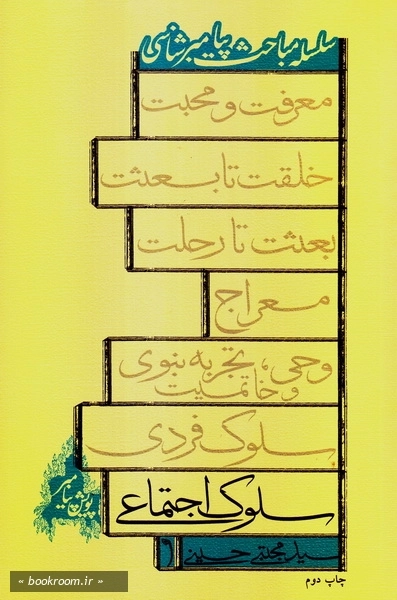 سلسله مباحث پیامبرشناسی
معرفت و محبت
خلقت تا بعثت
بعثت تا رحلت
معراج
وحی، تجربه نبوی
و خاتمیت
سلوک فردی
سلوک اجتماعی
سید مجتبی حسینی
چاپ دوم
« bookroom.ir »